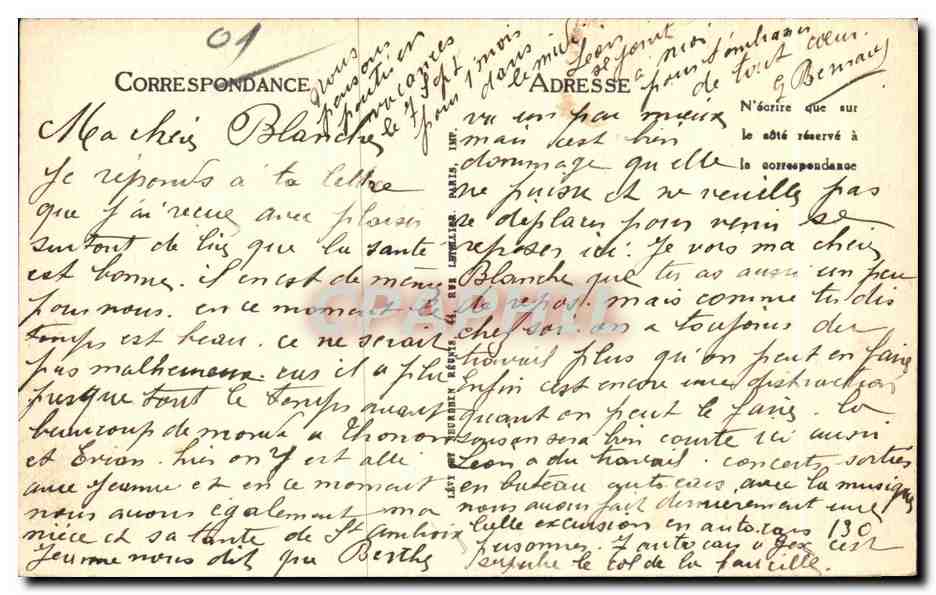 01
CORRESPONDANCE
ADRESSE
N'écrire que sur
le côté réservé à
la correspondance
LÉVY ET NEURDEIN RÉUNIS, 44, RUE LETELLIER, PARIS, IMP.
CPAPHIL
Ma chère Blanche
Je réponds à ta lettre
que j'ai reçue avec plaisir
surtout de lire que la santé
est bonne. il en est de même
pour nous. en ce moment le
temps est beau. ce ne serait
pas malheureux. car il a plu
presque tout le temps avant
beaucoup de monde a Thonon
et Evian. hier on y est allé
avec Jeanne et en ce moment
nous avons également ma
nièce et sa tante de St Ambroix
Jeanne nous dit que Berthe
va un peu mieux
mais c'est bien
dommage qu'elle
ne puisse et ne veuille pas
se déplacer pour venir se
reposer ici. Je vois ma chère
Blanche que tu as aussi un peu
de repos. mais comme tu dis
chez soi. on a toujours du
travail plus qu'on peut en faire
Enfin c'est encore une distraction
quant on peut le faire. la
saison sera bien courte ici aussi
Léon a du travail. concerts, sorties
en bateau autocars, avec la musique
nous avons fait dernièrement une
belle excursion en autocars 130
personnes. 7 autocars a Gex c'est
superbe le col de la faucille.
Nous
pensons
partir en
vacances
le 7 Sept
pour 1 mois
dans
le midi
Léon
se joint
a moi
pour t'embrasser
de tout coeur.